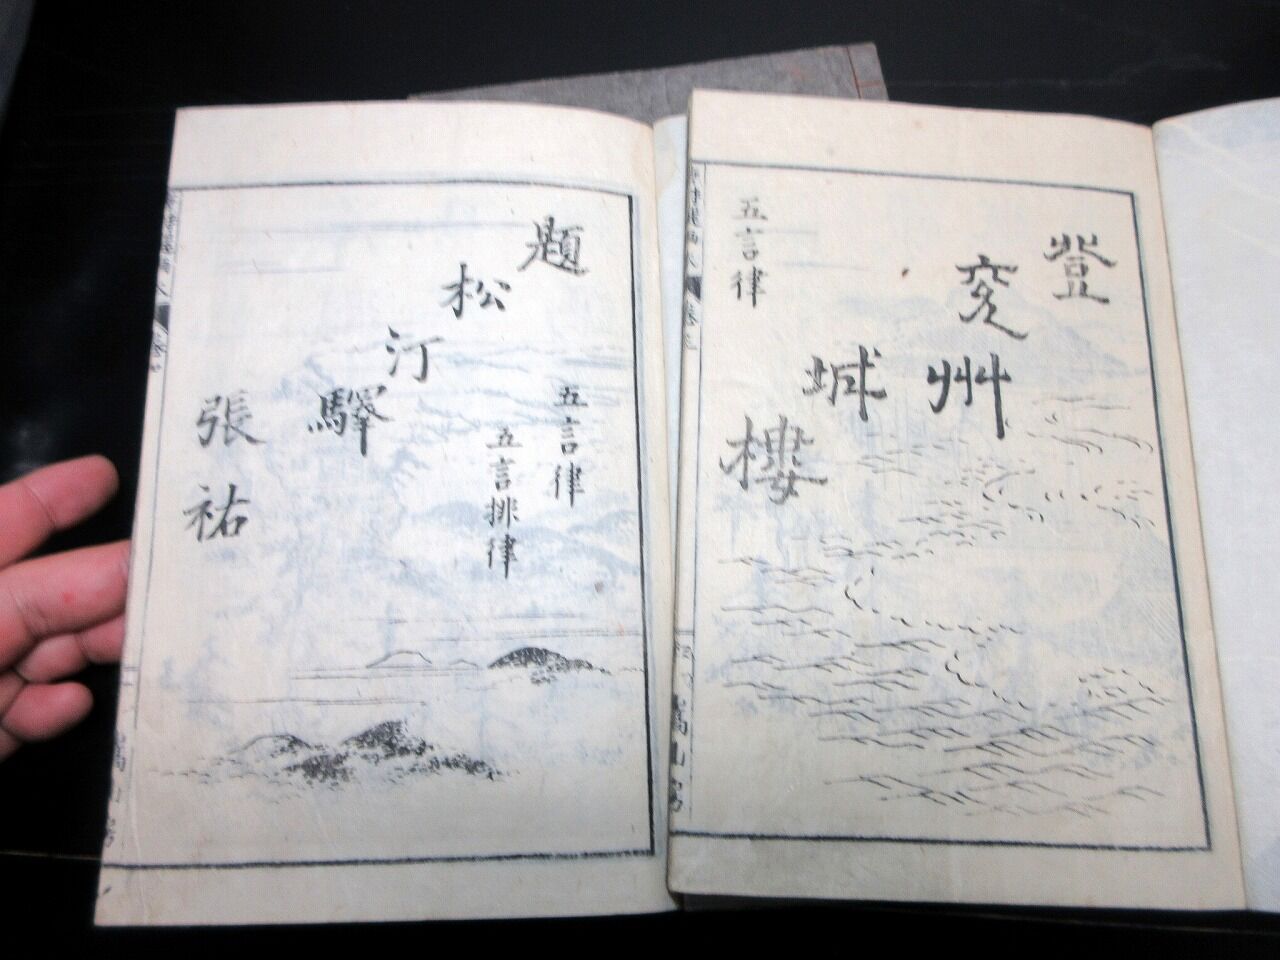 登兗州城樓
五言律
嵩山房
題松汀驛
五言律
五言排律
張祐